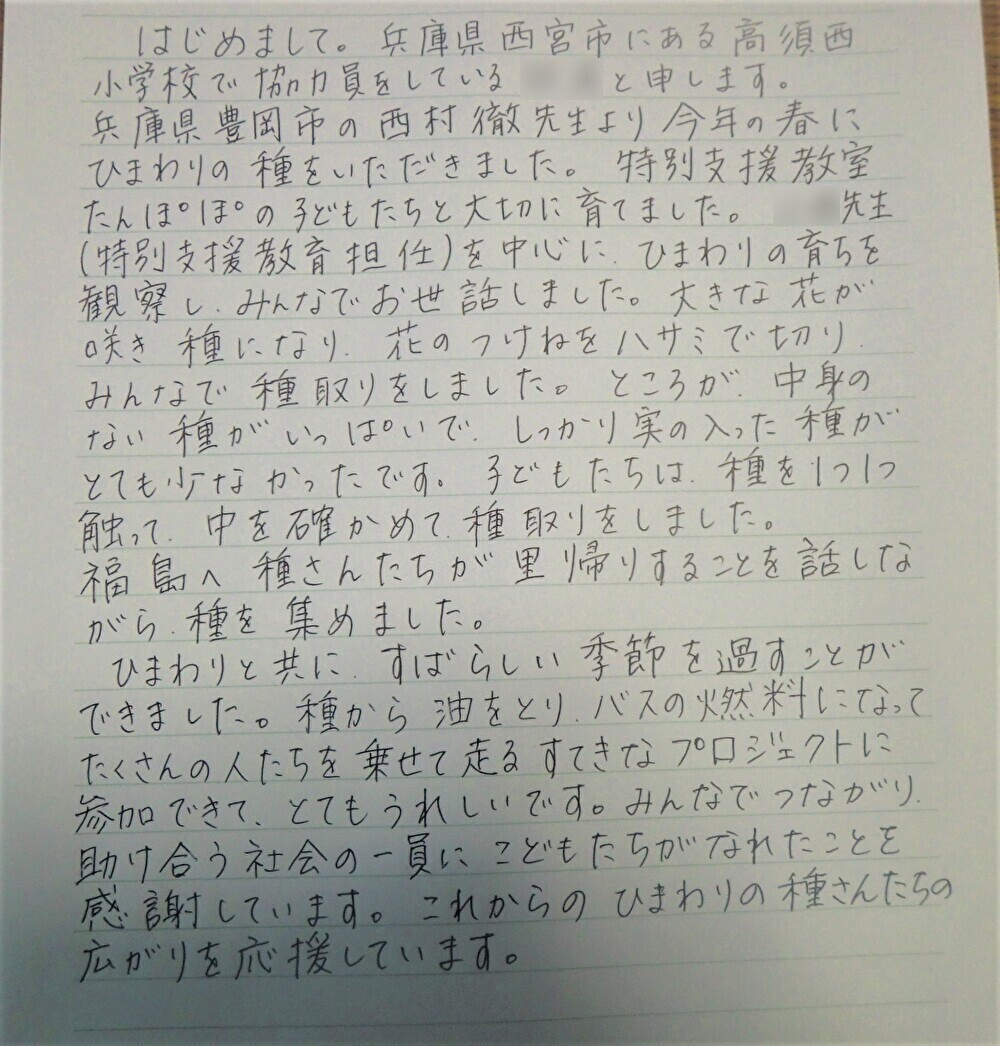 はじめまして。兵庫県西宮市にある高須西
小学校で協力員をしている と申します。
兵庫県豊岡市の西村徹先生より今年の春に
ひまわりの種をいただきました。特別支援教室
たんぽぽの子どもたちと大切に育てました。 先生
(特別支援教育担任)を中心に、ひまわりの育ちを
観察し、みんなでお世話しました。大きな花が
咲き種になり、花のつけねをハサミで切り、
みんなで種取りをしました。ところが、中身の
ない種がいっぱいで、しっかり実の入った種が
とても少なかったです。子どもたちは、種を1つ1つ
触って、中を確かめて、種取りをしました。
福島へ種さんたちが里帰りすることを話しな
がら、種を集めました。
ひまわりと共に、すばらしい季節を過すことが
できました。種から油をとり、バスの燃料になって
たくさんの人たちを乗せて走るすてきなプロジェクトに
参加できて、とてもうれしいです。みんなでつながり、
助け合う社会の一員にこどもたちがなれたことを
感謝しています。これからのひまわりの種さんたちの
広がりを応援しています。